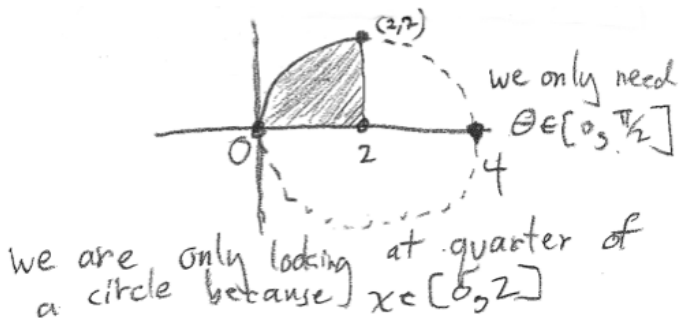 (2,2)
we only need
θ∈[0, π/2]
0
2
4
we are only looking at quarter of
a circle because x∈[0,2]